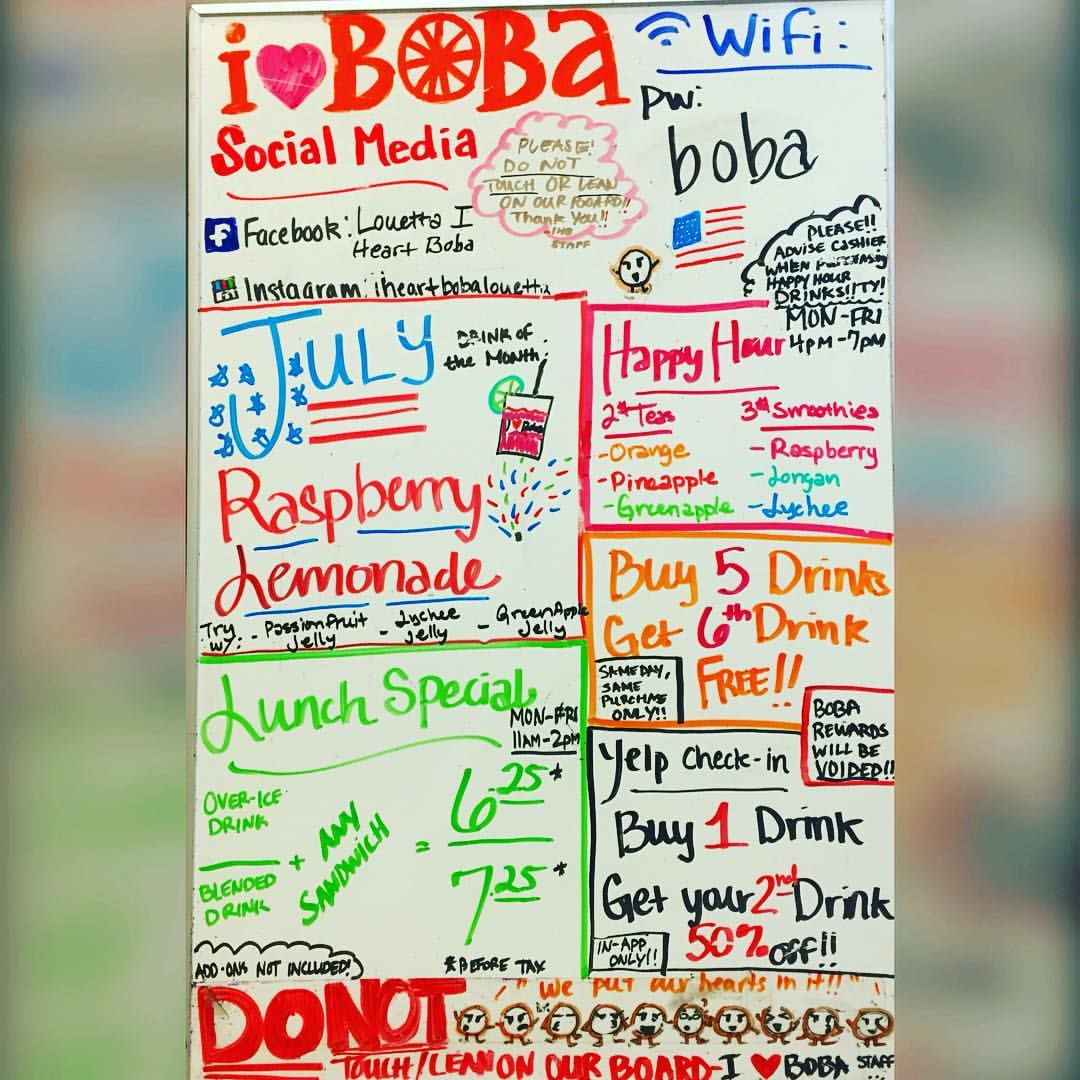 i ♥ BOBA
Social Media
PLEASE!
DO NOT
TOUCH OR LEAN
ON OUR BOARD!!
Thank you!!
-IHB
STAFF
Facebook: Louetta I
Heart Boba
Instagram: iheartbobalouetta
Wifi:
pw:
boba
PLEASE!!
ADVISE CASHIER
WHEN PURCHASING
HAPPY HOUR
DRINKS!!(TY!
JULY
DRINK OF
the MONTH:
I ♥ Boba
Raspberry
Lemonade
Try
w/:
- Passionfruit
Jelly
- Lychee
Jelly
- GreenApple
Jelly
Happy Hour
MON-FRI
4PM-7PM
2$ Teas
-Orange
-Pineapple
-Greenapple
3$ Smoothies
-Raspberry
-Longan
-Lychee
Buy 5 Drinks
Get 6th Drink
FREE!!
SAMEDAY,
SAME
PURCHASE
ONLY!!
BOBA
REWARDS
WILL BE
VOIDED!!
Lunch Special
MON-FRI
11AM-2PM
OVER-ICE
DRINK
BLENDED
DRINK
+ ANY
SANDWICH
=
6.25*
7.25*
ADD-ONS NOT INCLUDED!
*BEFORE TAX
Yelp Check-in
Buy 1 Drink
Get your 2nd Drink
50% off!!
IN-APP
ONLY!!
"We put our hearts in it!!"
DO NOT
TOUCH/LEAN ON OUR BOARD-I ♥ BOBA STAFF